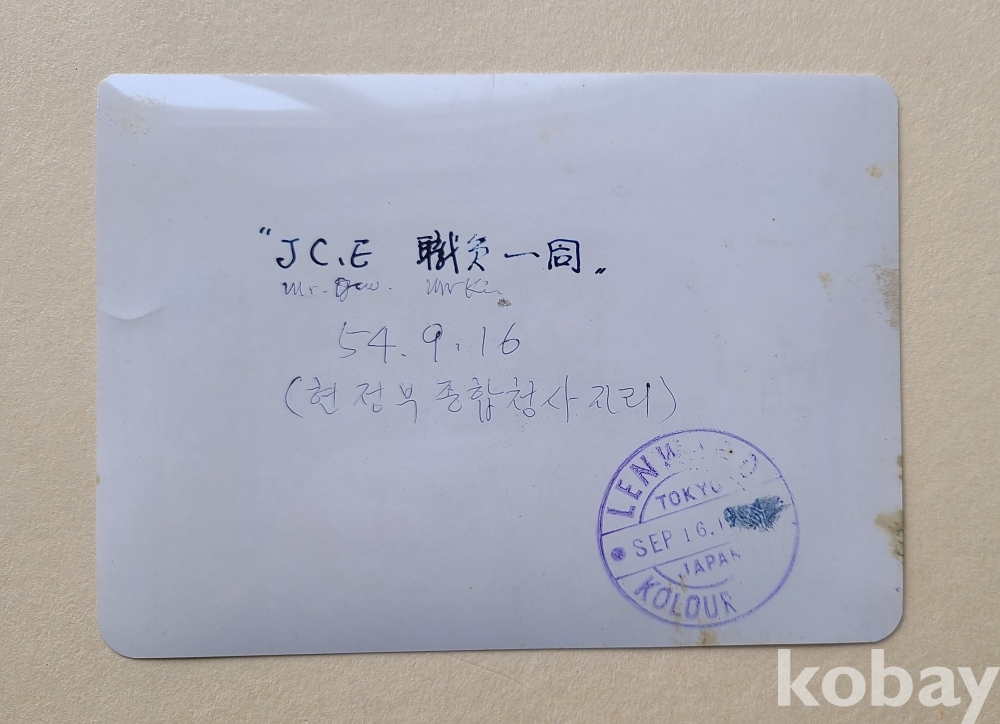 "JC.E 職員一同"
Mr.
54.9.16
(현 정부종합청사 자리)
TOKYO
SEP 16.1
JAPAN
KOLOUR
kobay